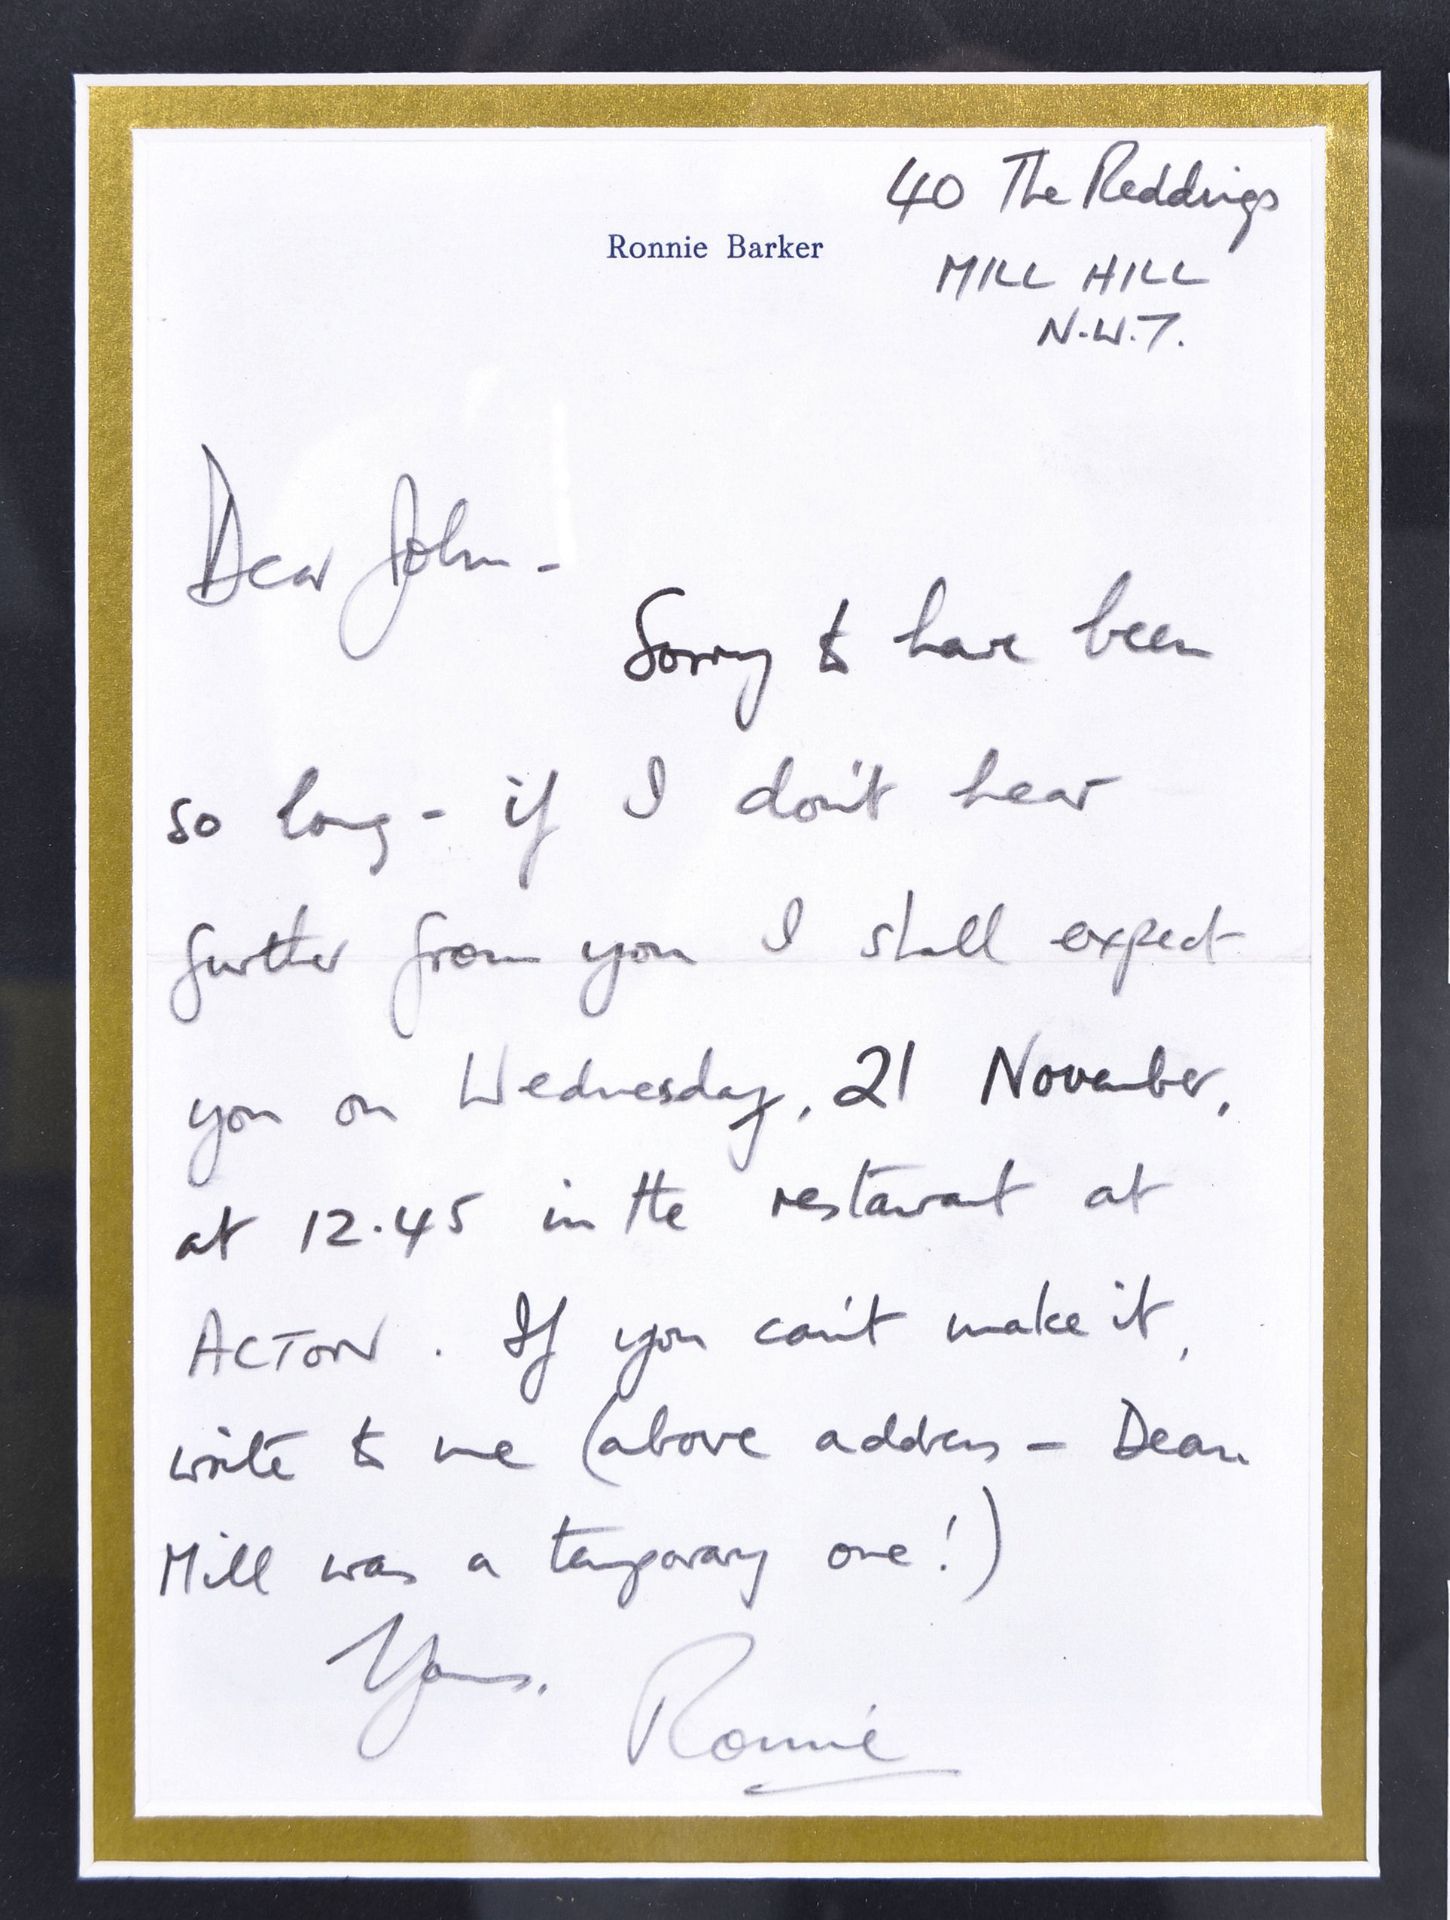 40 The Reddings
Ronnie Barker
MILL HILL
N.W.7.
Dear John -
Sorry to have been
so long - if I don't hear
further from you I shall expect
you on Wednesday, 21 November,
at 12.45 in the restaurant at
ACTON. If you can't make it,
write to me (above address - Dean
Mill was a temporary one!)
Yours,
Ronnie